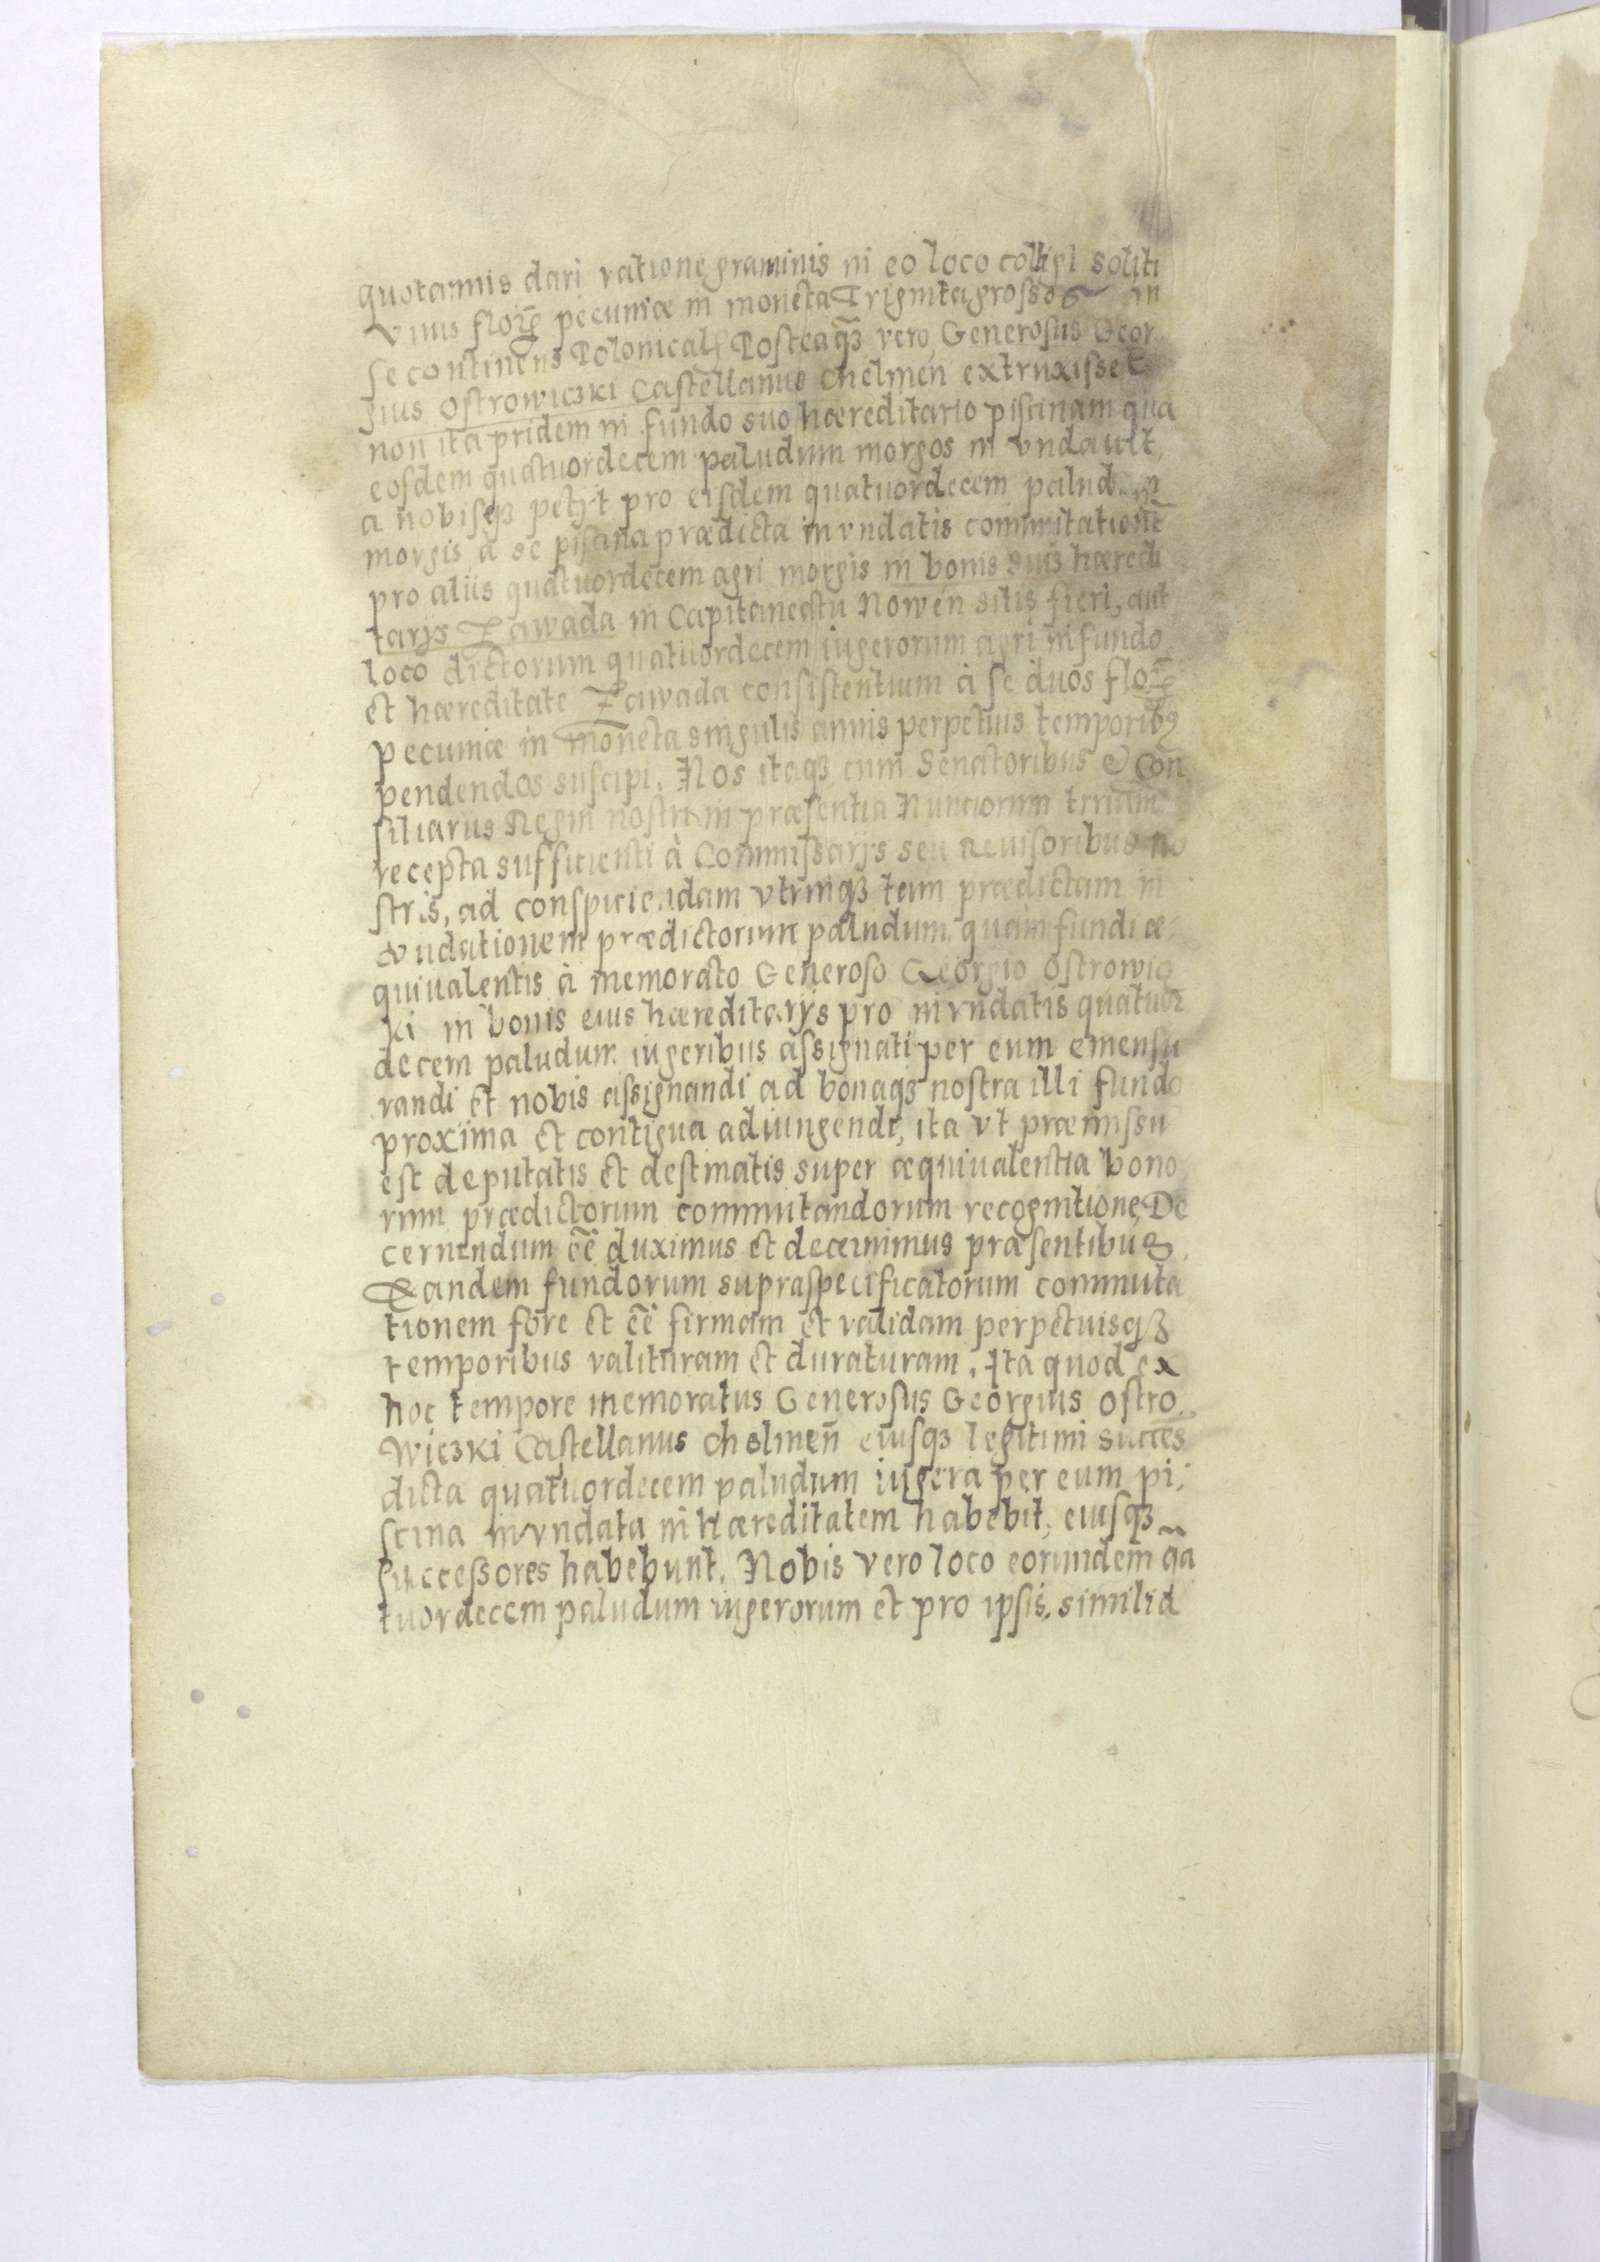 quotannis dari ratione graminis in eo loco colligi soliti
Vnius floꝝ pecuniæ in moneta Triginta grossos in
se continens Polonical Posteaqꝫ vero Generosus Geor
gius Ostrowiczki Castellanus Chelmeñ extruxisset
non ita pridem in fundo suo hæreditario piscinam qua
eosdem quatuordecem paludum morgos in vndauit,
a nobisqꝫ petijt pro eisdem quatuordecem palud
morgis à se piscina prædicta in vndatis commutationẽ
pro aliis quatuordecem agri morgis in bonis suis hæredi
tarijs Zawada in Capitaneatu Noweñ sitis fieri, aut
loco dictorum quatuordecem iugerorum agri in fundo
et hæreditate Zawada consistentium à se duos floꝝ
pecuniæ in moneta singulis annis perpetuis temporibꝰ
pendendos suscipi. Nos itaqꝫ cum Senatoribus & Con
siliarijs Regni nostri in præsentia Nunciorum terrarum
recepta sufficienti à Commissarijs seu Reuisoribus no
stris, ad conspiciendam vtrinqꝫ tam prædictam in
vndationem prædictorum paludum quam fundi æ
quiualentis à memorato Generoso Georgio Ostrowicz
ki in bonis eius hæreditarijs pro in vndatis quatuor
decem paludum iugeribus assignati per eum emensu
randi et nobis assignandi ad bonaqꝫ nostra illi fundo
proxima et contigua adiungendi, ita vt præmissu
est deputatis et destinatis super æquiualentia bono
rum prædictorum commutandorum recognitione De
cernendum eẽ duximus et decernimus præsentibus
Eandem fundorum supraspecificatorum commuta
tionem fore et eẽ firmam et validam perpetuisqꝫ
temporibus valituram et duraturam. Ita quod ex
hoc tempore memoratus Generosus Georgius Ostro
wiczki Castellanus Chelmeñ eiusqꝫ legitimi succes
dicta quatuordecem paludum iugera per eum pi,
scina in vndata in hæreditatem habebit, eiusqꝫ
successores habebunt. Nobis vero loco eorundem qa
tuordecem paludum iugerorum et pro ipsis, similia